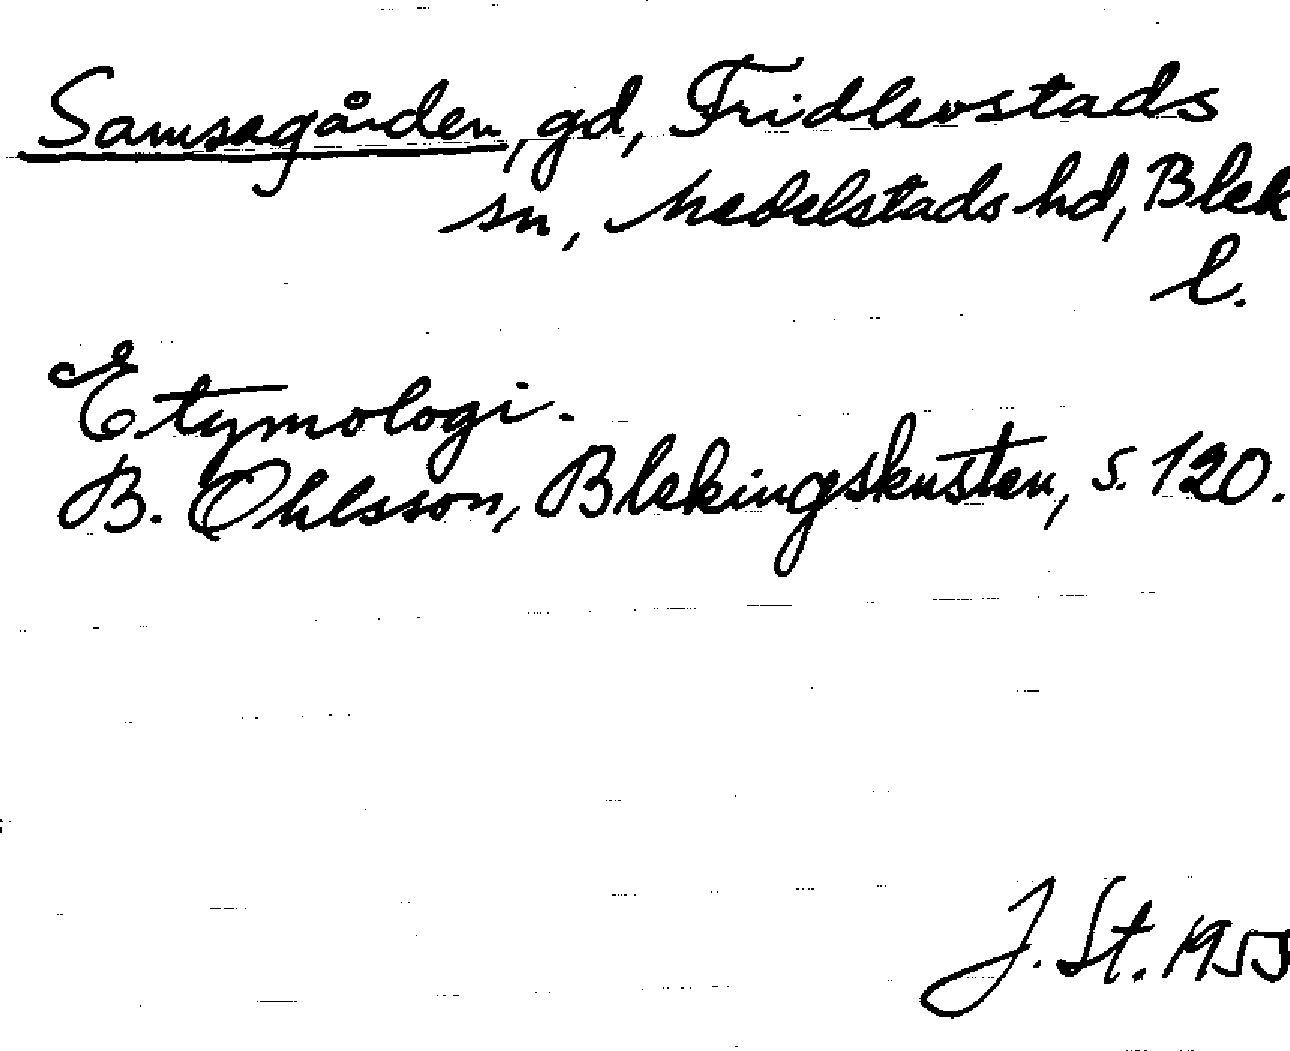 Samsagården, gd, Fridlevstads
sn, Medelstads hd, Blek
l.
Etymologi.
B. Ohlsson, Blekingskusten, s. 120.
J. St. 1955